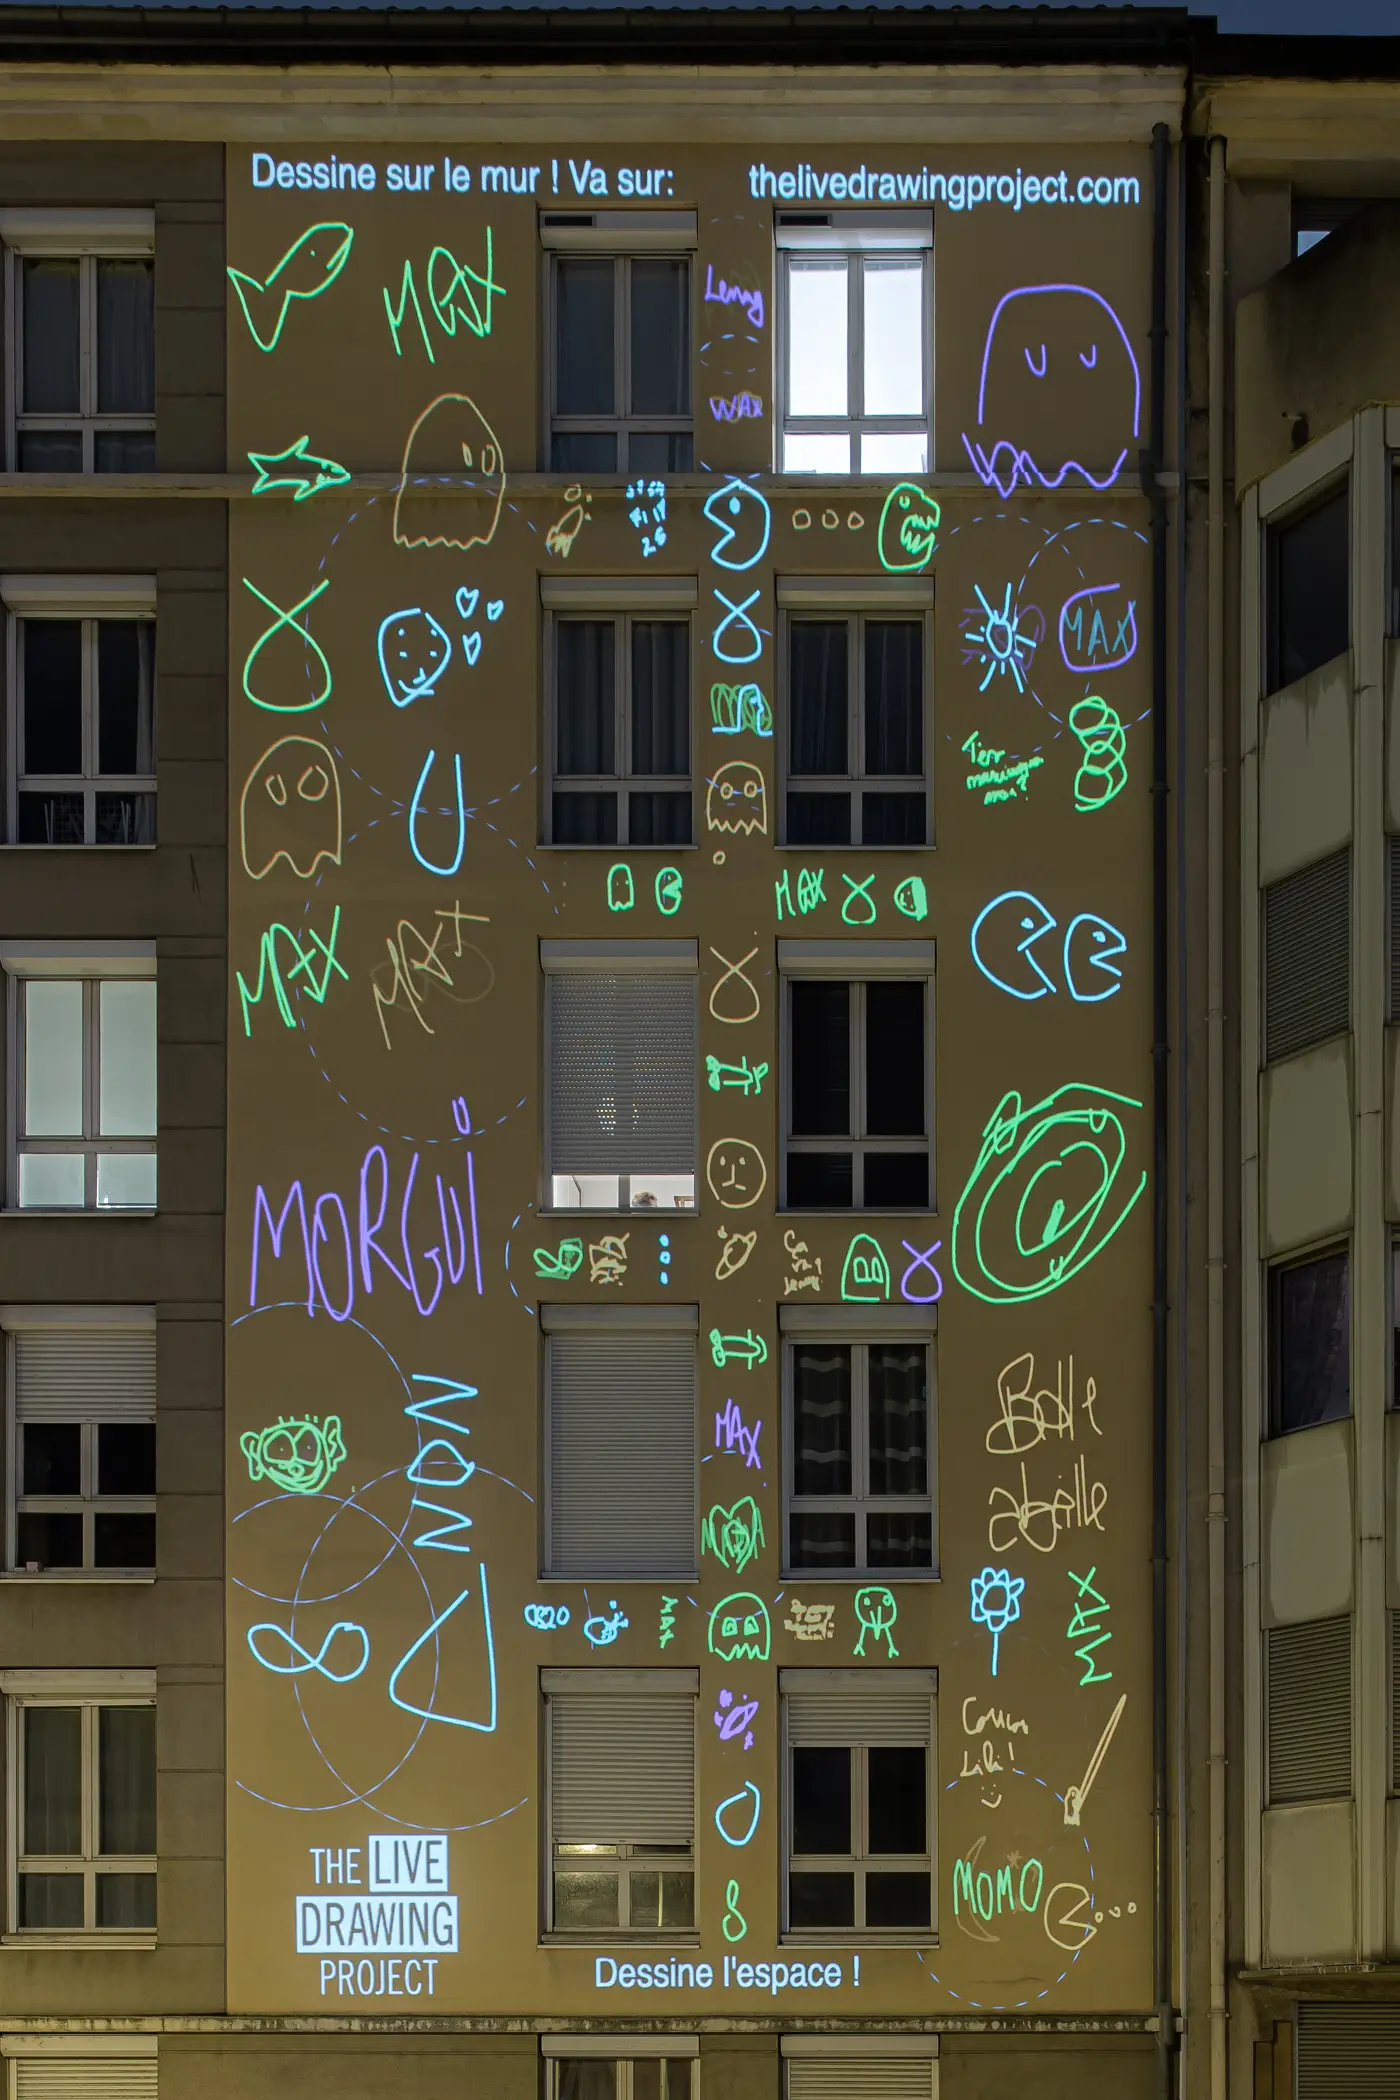 Dessine sur le mur ! Va sur: thelivedrawingproject.com
MAX
Lenny
WAX
MAX
MAX
MAX
MAX
MORGUI
NON
MAX
Balle
abeille
MAX
MAX
Coucou
Lili !
MOMO
THE LIVE
DRAWING
PROJECT
Dessine l'espace !